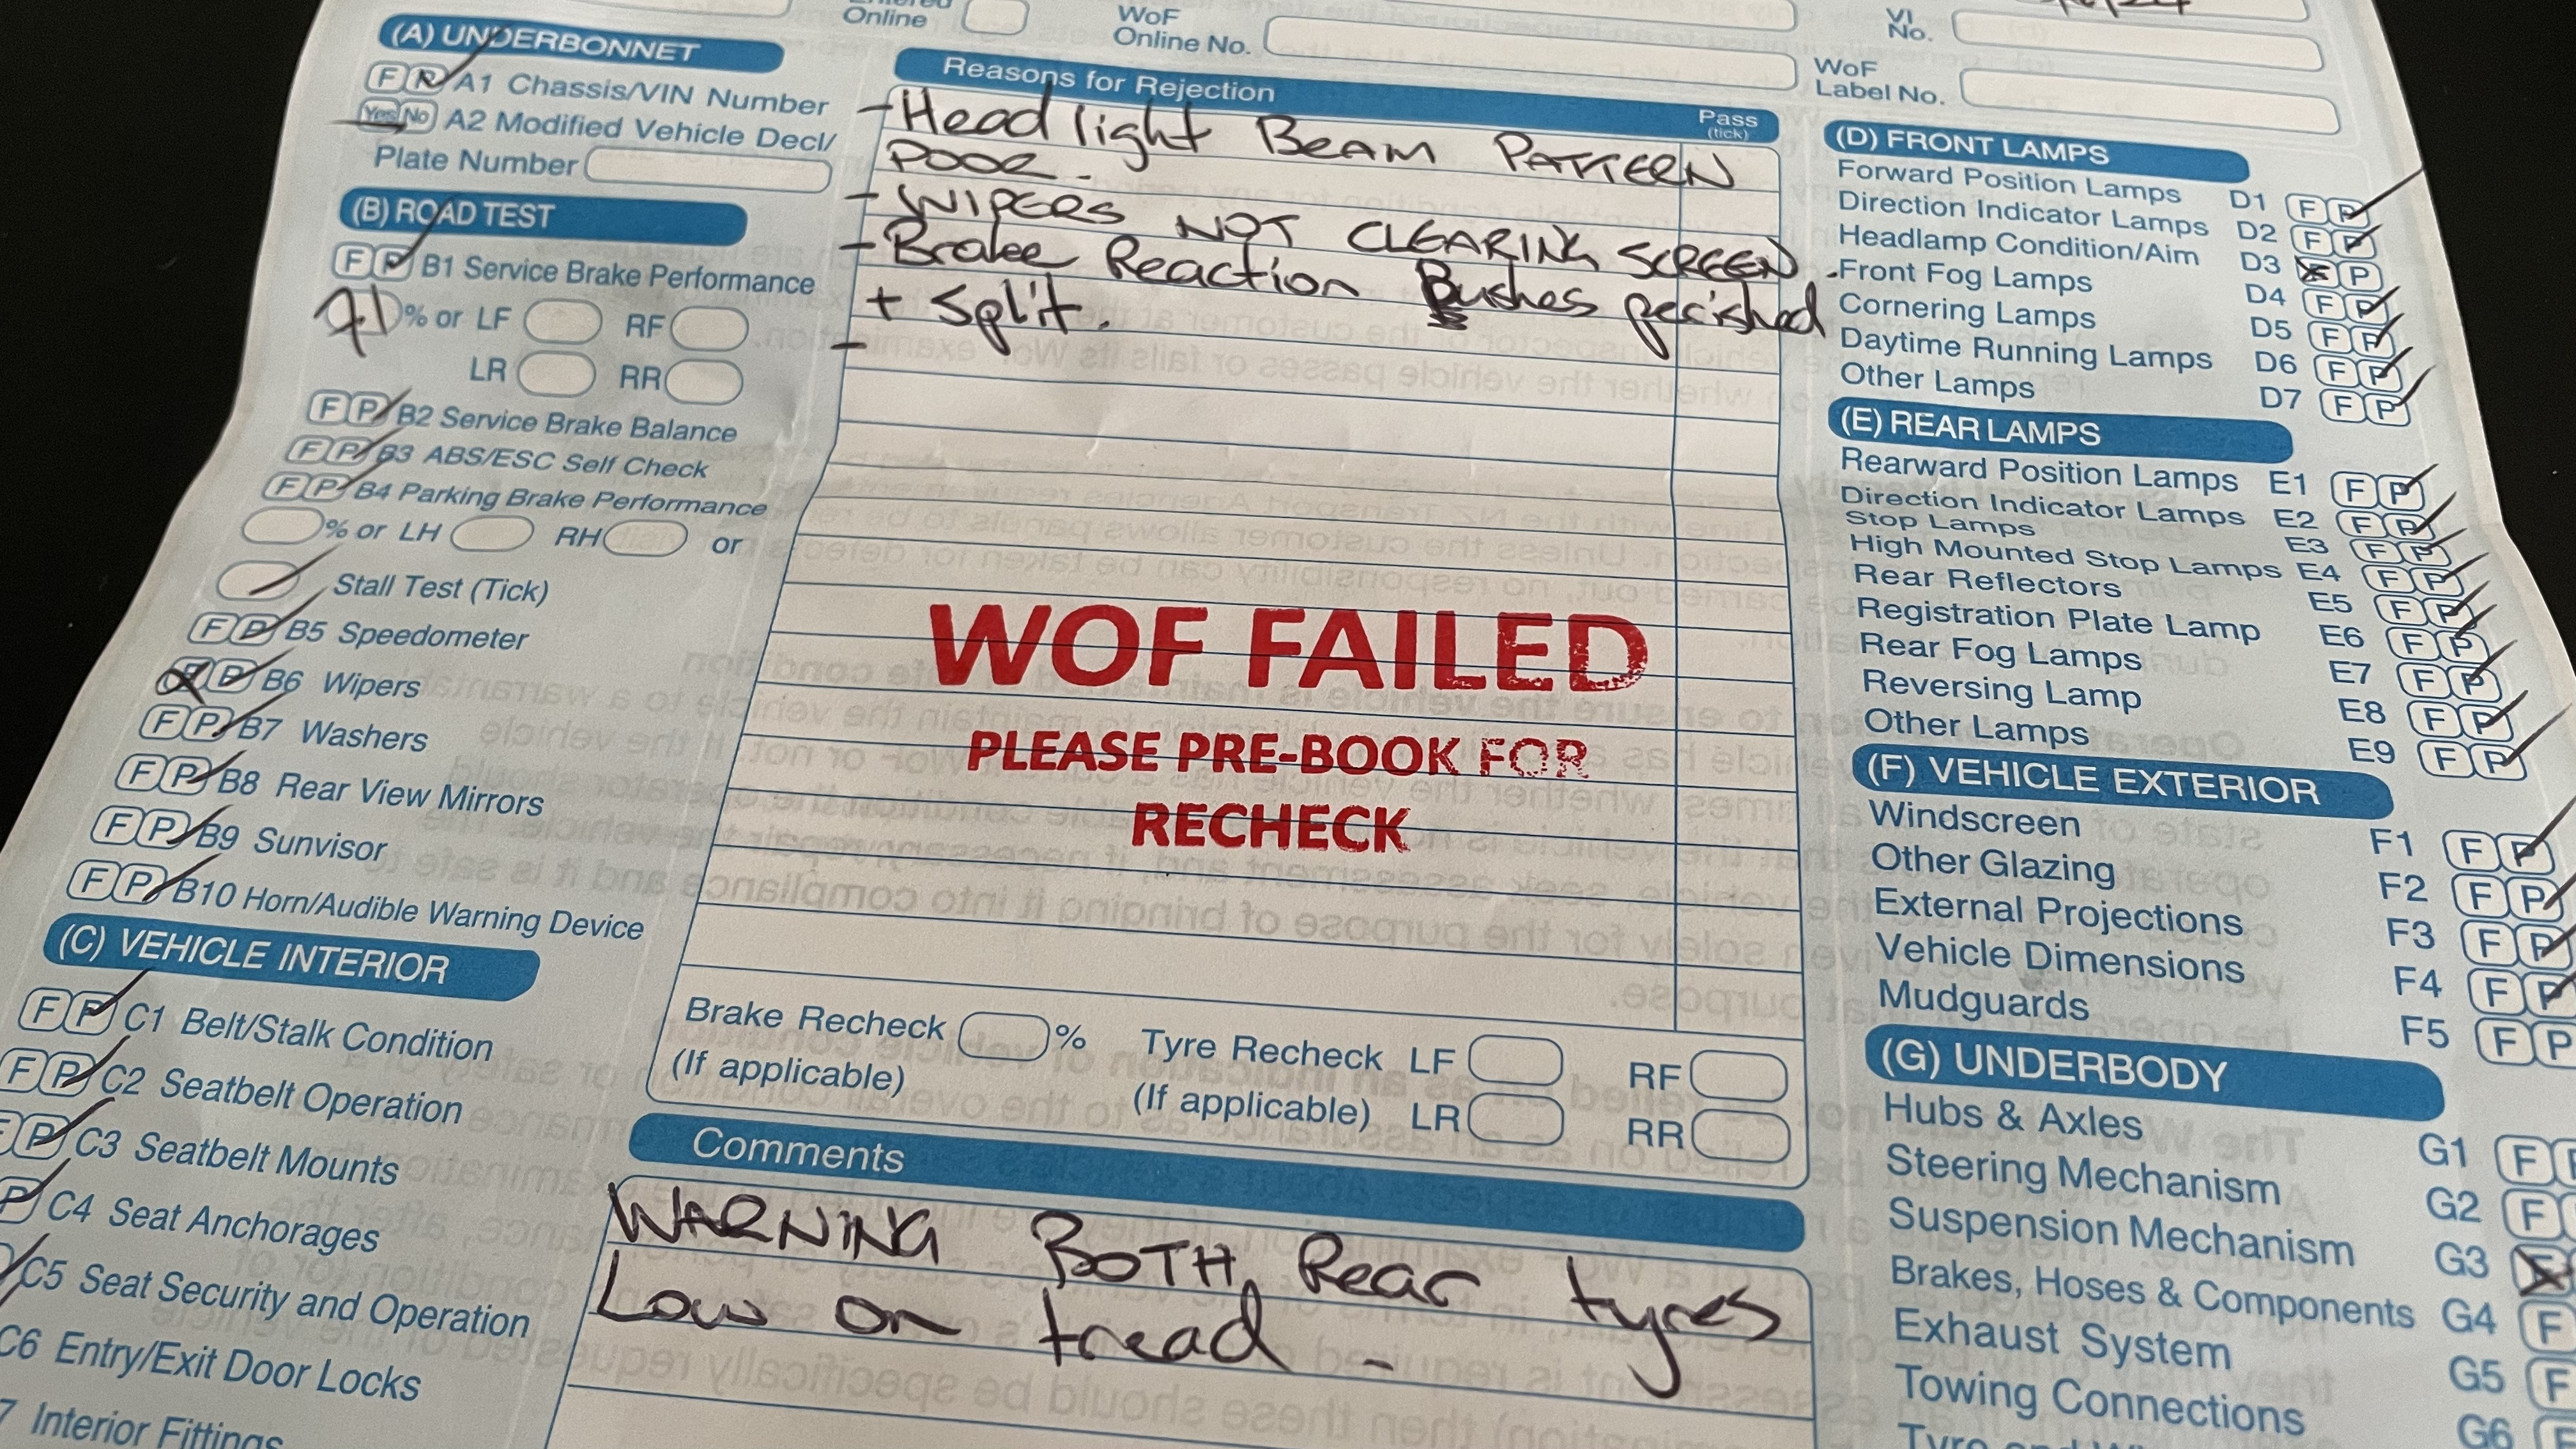 Online
WoF
Online No.
VI
No.
WoF
Label No.
(A) UNDERBONNET
F P A1 Chassis/VIN Number
Yes No A2 Modified Vehicle Decl/
Plate Number
(B) ROAD TEST
F P B1 Service Brake Performance
71 % or LF RF
LR RR
F P B2 Service Brake Balance
F P B3 ABS/ESC Self Check
F P B4 Parking Brake Performance
% or LH RH or
Stall Test (Tick)
F P B5 Speedometer
F P B6 Wipers
F P B7 Washers
F P B8 Rear View Mirrors
F P B9 Sunvisor
F P B10 Horn/Audible Warning Device
(C) VEHICLE INTERIOR
F P C1 Belt/Stalk Condition
F P C2 Seatbelt Operation
F P C3 Seatbelt Mounts
P C4 Seat Anchorages
C5 Seat Security and Operation
C6 Entry/Exit Door Locks
7 Interior Fittings
Reasons for Rejection
Pass
(tick)
- Headlight Beam PATTERN
POOR.
- WIPERS NOT CLEARING SCREEN
- Brake Reaction Bushes perished
+ Split.
-
WOF FAILED
PLEASE PRE-BOOK FOR
RECHECK
Brake Recheck %
(If applicable)
Tyre Recheck LF RF
(If applicable) LR RR
Comments
WARNING BOTH Rear tyres
Low on tread -
(D) FRONT LAMPS
Forward Position Lamps D1 F P
Direction Indicator Lamps D2 F P
Headlamp Condition/Aim D3 F P
Front Fog Lamps D4 F P
Cornering Lamps D5 F P
Daytime Running Lamps D6 F P
Other Lamps D7 F P
(E) REAR LAMPS
Rearward Position Lamps E1 F P
Direction Indicator Lamps E2 F P
Stop Lamps E3 F P
High Mounted Stop Lamps E4 F P
Rear Reflectors E5 F P
Registration Plate Lamp E6 F P
Rear Fog Lamps E7 F P
Reversing Lamp E8 F P
Other Lamps E9 F P
(F) VEHICLE EXTERIOR
Windscreen F1 F P
Other Glazing F2 F P
External Projections F3 F P
Vehicle Dimensions F4 F P
Mudguards F5 F P
(G) UNDERBODY
Hubs & Axles G1 F
Steering Mechanism G2 F
Suspension Mechanism G3 F
Brakes, Hoses & Components G4 F
Exhaust System G5 F
Towing Connections G6